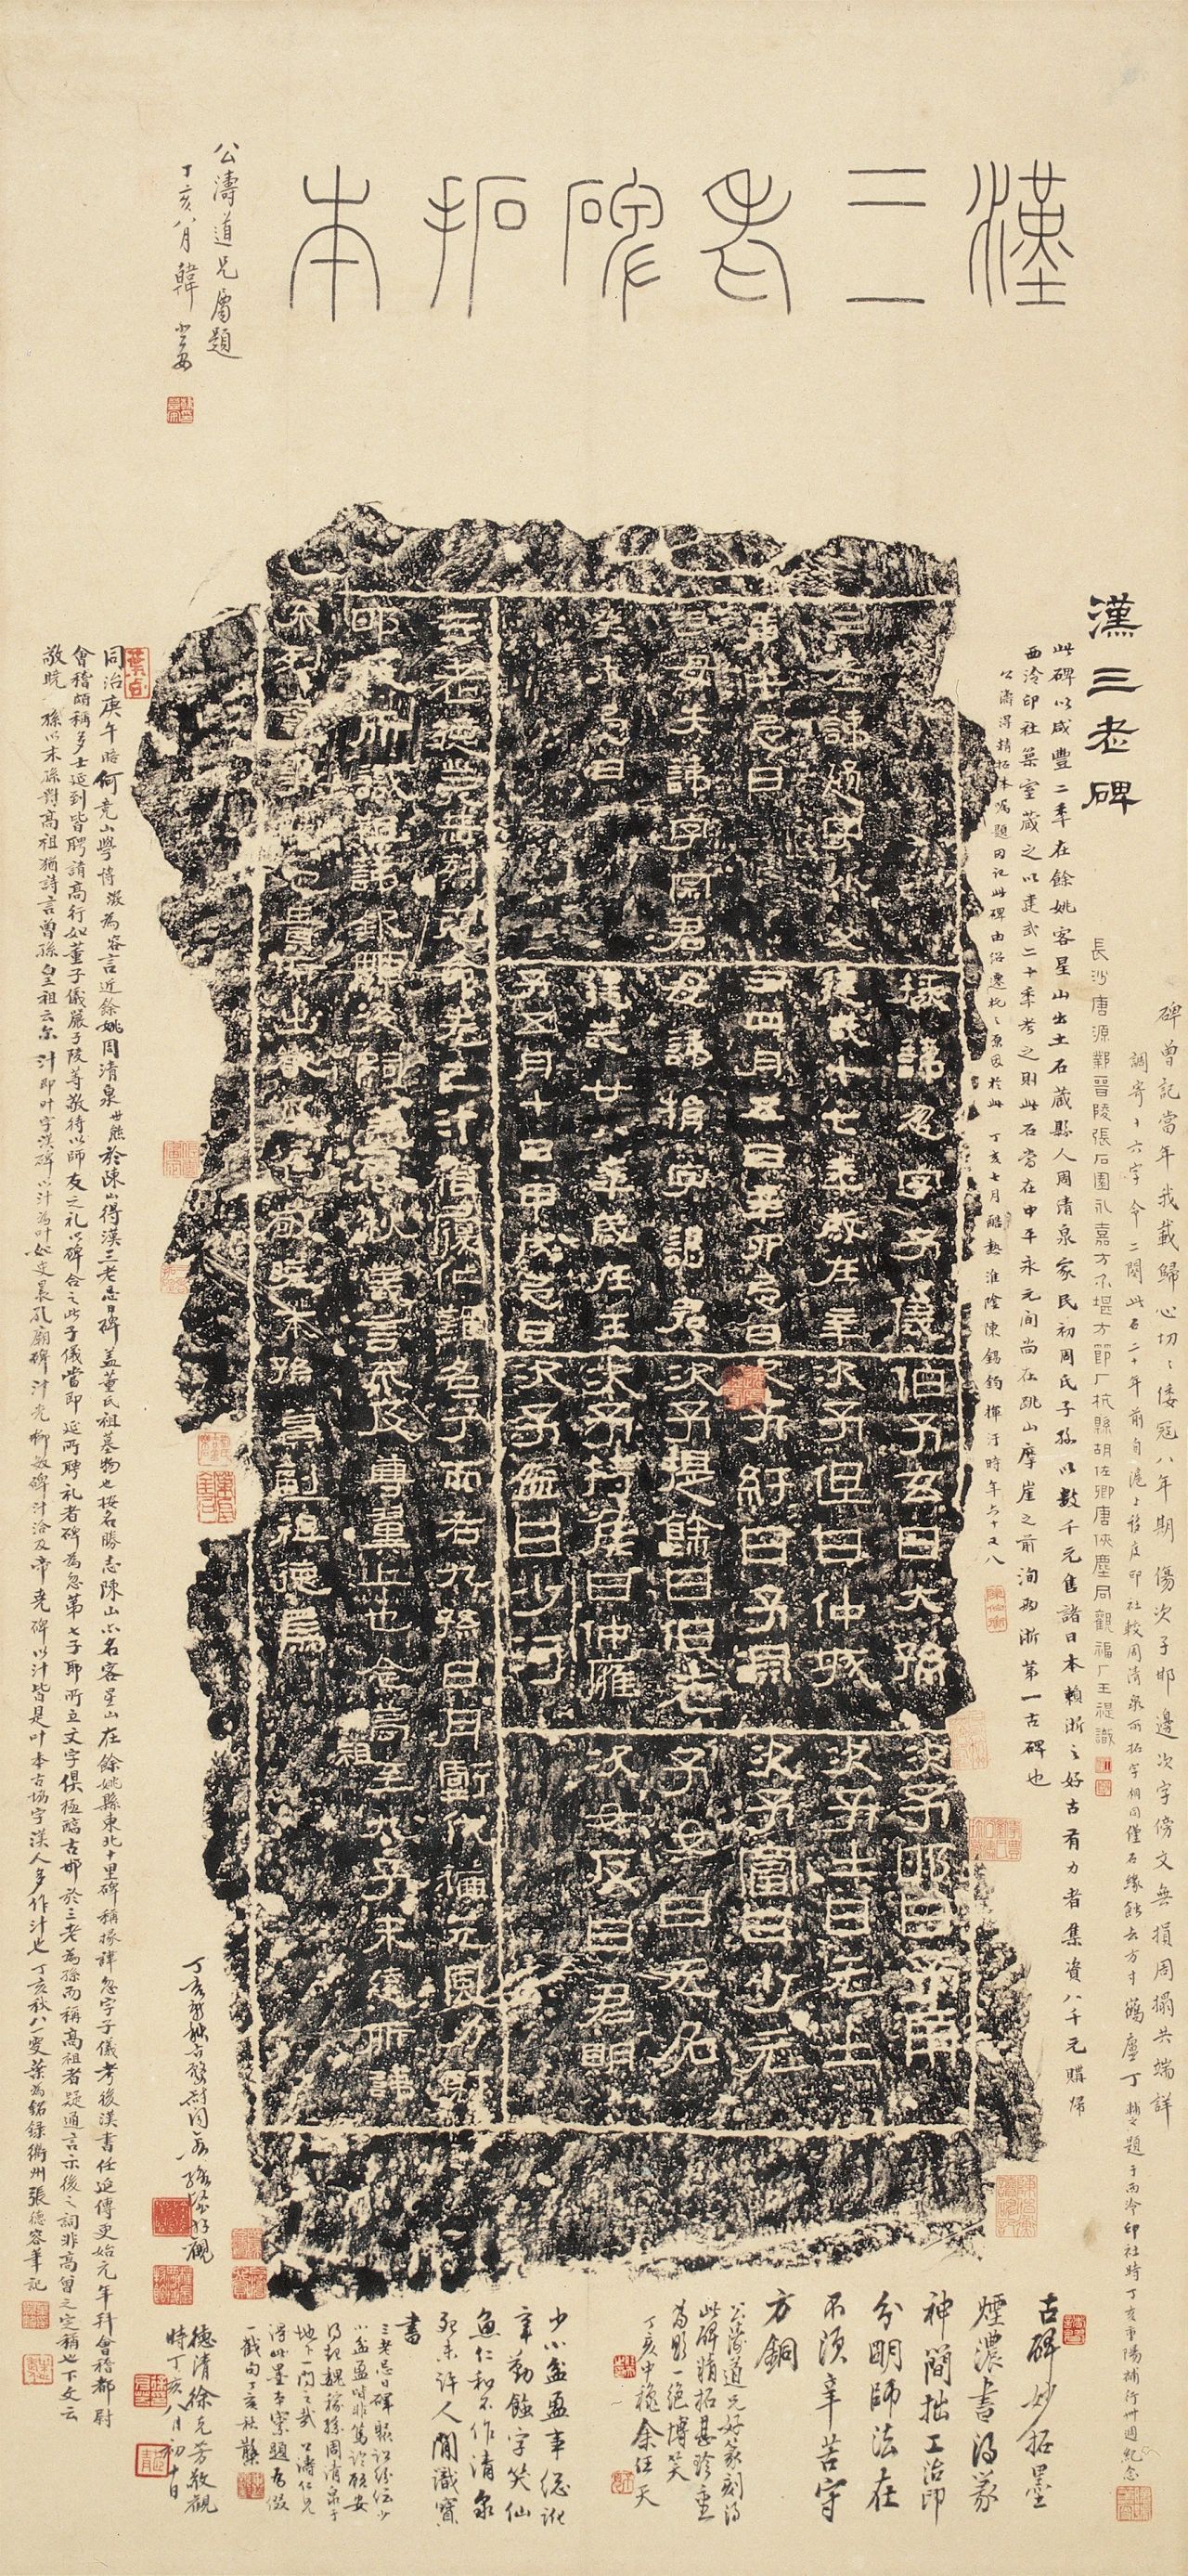 漢三老碑拓本
公濤道兄屬題
丁亥八月韓登安
漢三老碑
此碑以咸豐二年在餘姚客星山出土石藏縣人周清泉家民初周氏子孫以數千元售諸日本賴浙之好古有力者集資八千元購歸
西泠印社築室藏之以建武二十年考之則此石當在中平永元間尚在跳山摩崖之前洵為浙第一古碑也
公濤得精拓本囑題因記此碑由紹遷杭之原因於此 丁亥七月酷熱淮陰陳錫鈞揮汗時年六十又八
長沙唐源鄴晉陵張石園永嘉方介堪方節厂杭縣胡佐卿唐俠塵同觀福厂王禔識
碑曾記當年我載歸心切切倭寇八年期傷次子邯邊次字傍文無損周搨共端詳
調寄十六字令二闋此石二十年前自滬上移庋印社較周清泉所拓字相同僅石緣蝕去方寸 鶴廬丁輔之題于西泠印社時丁亥重陽補行卌週紀念
三老諱通字小父
庚午忌日
祖母失諱字宗君
癸未忌日
掾諱忽字子儀
建武十七年歲在辛
丑四月五日辛卯忌日
母諱捐字謁君
建武廿八年歲在壬
子五月十日甲戌忌日
伯子玄曰大孫
次子但曰仲城
次子紆曰子淵
次子提餘曰伯老
次子持侯曰仲雍
次子盆曰少河
次子邯曰子南
次子士曰元士
次子富曰少元
子女曰无名
次女反曰君明
三老德業赫烈克命先己汁稽履仁難名兮而右九孫日月虧代猶元風力射
邯及所識祖諱欽顯後嗣蓋春秋義言不及尊翼上也念高祖至九子未遠所諱
不列言事觸忌貴所出嚴及焦敬曉末孫冀副祖德焉
同治庚午晤何竟山學博澂為容言近餘姚周清泉世熊於陳山得漢三老忌日碑蓋董氏祖墓物也按名勝志陳山亦名客星山在餘姚縣東北十里碑稱掾諱忽字子儀考後漢書任延傳更始元年拜會稽都尉
會稽頗稱多士延到皆聘請高行如董子儀嚴子陵等敬待以師友之礼以碑合之此子儀當即延所聘礼者碑為忽第七子邯所立文字俱極醇古邯於三老為孫而稱高祖者疑通言示後之詞非高曾之定稱也下文云
敬曉末孫以末孫對高祖猶詩言曾孫皇祖云尔汁即叶字漢碑以汁為叶如史晨孔廟碑汁光柳敏碑汁洽及帝堯碑以汁皆是叶本古協字漢人多作汁也丁亥秋八一叟葉為銘錄衢州張德容筆記
德清徐克芳敬觀
時丁亥八月初十日
古碑妙拓墨
煙濃書得篆
神簡拙工治印
分明師法在
不須辛苦守
方銅
公濤道兄好篆刻得
此碑精拓甚珍重
為題一絕博笑
丁亥中穐余任天
少小盆盈事総訛
辛勤蝕字笑仙
魚仁和不作清泉
死未許人間識寶
書